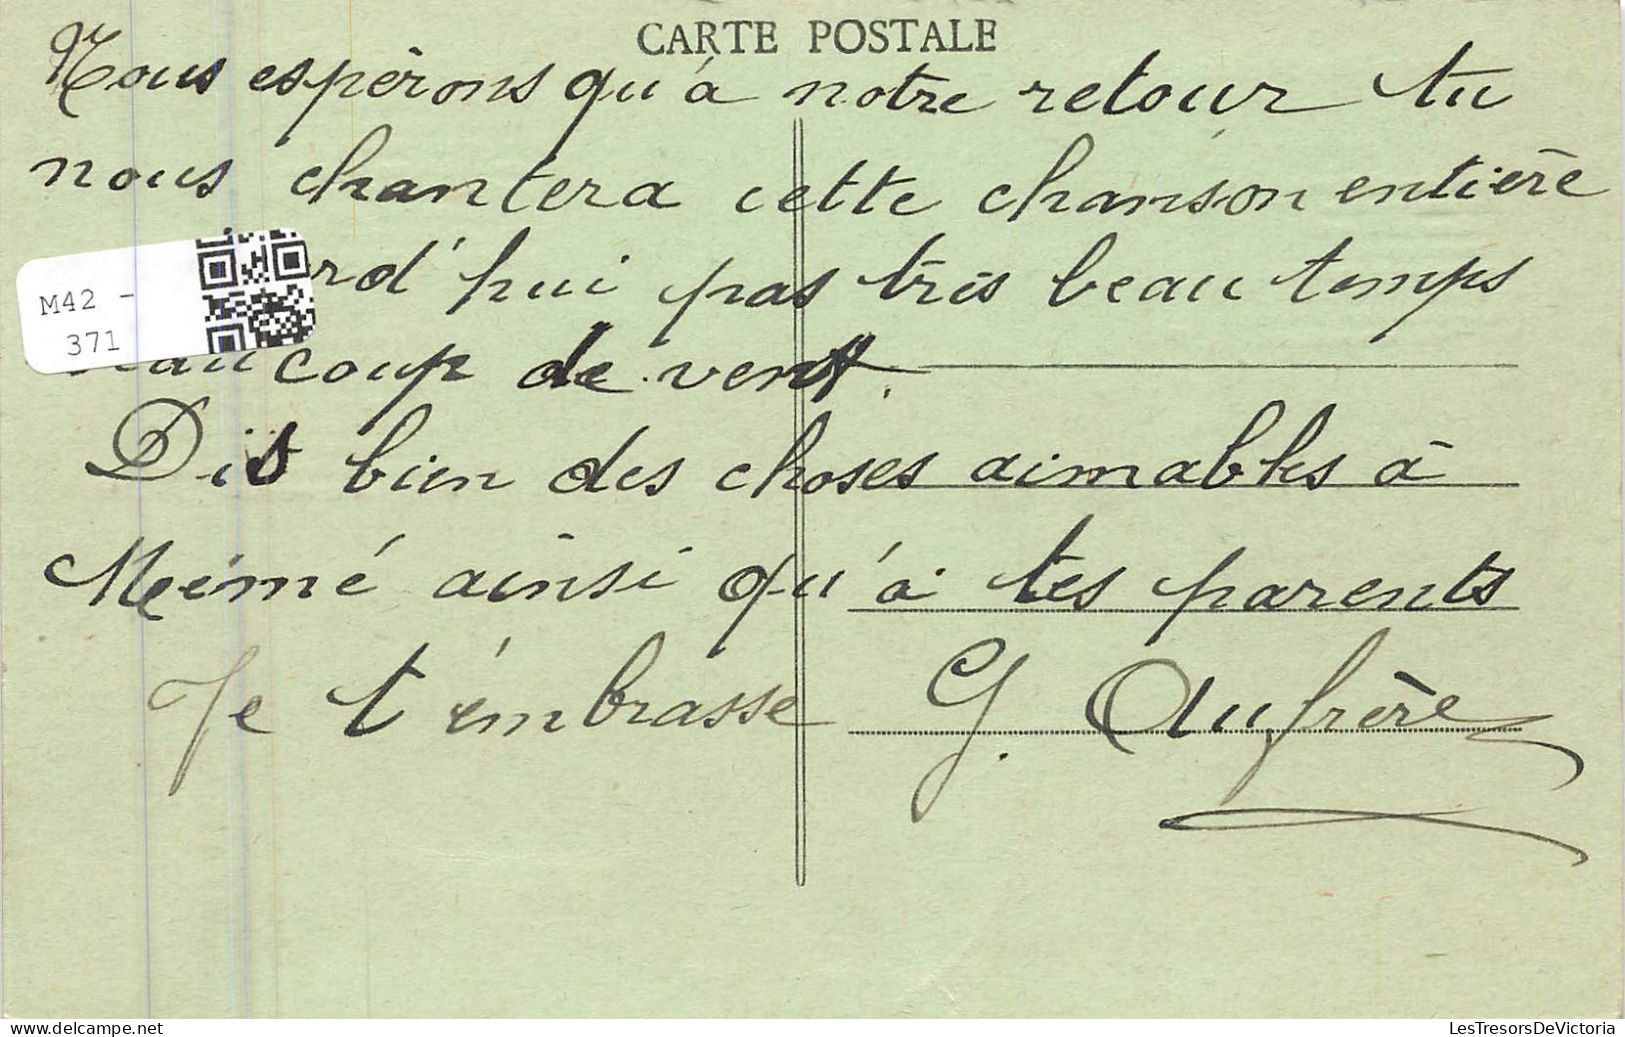 CARTE POSTALE
Nous espèrons qu'à notre retour tu
nous chantera cette chanson entière
rd'hui pas très beau temps
aucoup de vent.
Dis bien des choses aimables à
Mémé ainsi qu'à tes parents
Je t'embrasse G. Aufrère
M42 -
371
delcampe.net
LesTresorsDeVictoria